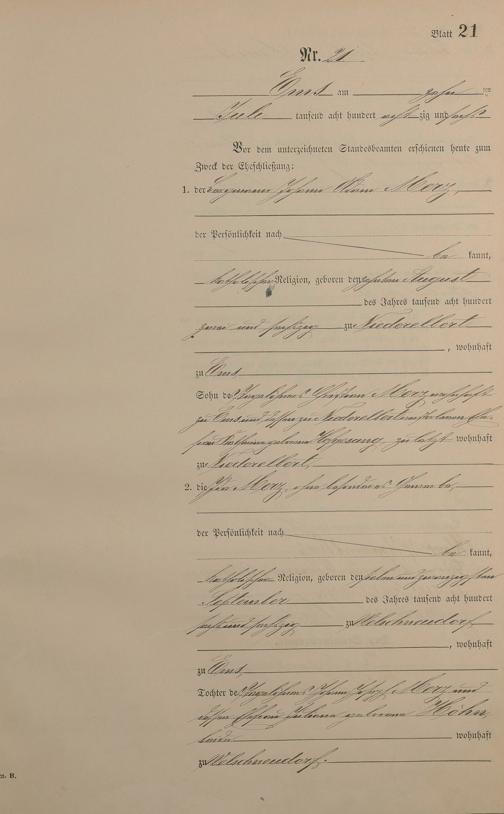 Blatt 21
Nr. 21
Ems am zehn ten
Juli tausend acht hundert acht zig und sechs
Vor dem unterzeichneten Standesbeamten erschienen heute zum
Zweck der Eheschließung:
1. der Bergmann Johann Adam Merz,
der Persönlichkeit nach
be kannt,
katholischer Religion, geboren den zehnten August
des Jahres tausend acht hundert
zwei und sechzig zu Niederelbert
, wohnhaft
zu Ems
Sohn des Tagelöhners Christian Merz wohnhaft
zu Ems und dessen zu Niederelbert verstorbenen Ehe-
frau geborene zuletzt wohnhaft
zu Niederelbert,
2. die Merz, ohne besonderes Gewerbe,
der Persönlichkeit nach
be kannt,
katholischer Religion, geboren den sieben und zwanzigsten
September des Jahres tausend acht hundert
sechzig zu Welschneudorf
, wohnhaft
zu Ems,
Tochter des Tagelöhners Johann Josef Merz und
dessen Ehefrau Juliana geborene Höhn,
beide wohnhaft
zu Welschneudorf.
m. B.